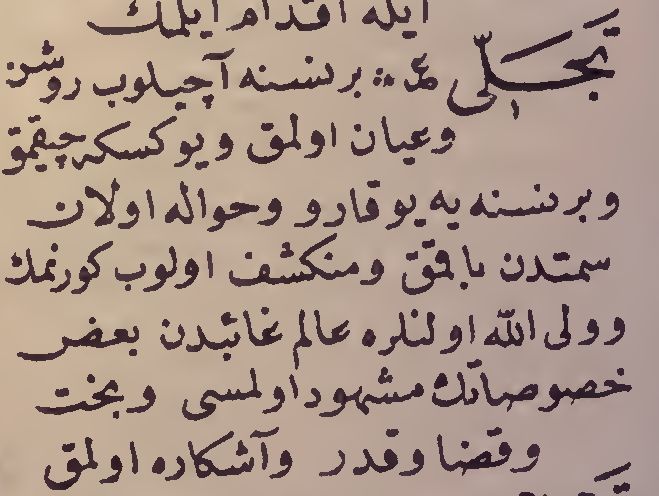 ایله اقدام ایلمك
تجلّی ع بر نسنه آچیلوب روشن
وعیان اولمق ویوكسكه چیقمق
وبر نسنه یه یوقارو وحواله اولان
سمتدن باقمق ومنكشف اولوب كورنمك
وولی الله اولنلره عالم غائبدن بعض
خصوصاتك مشهود اولمسی وبخت
وقضا وقدر وآشكاره اولمق